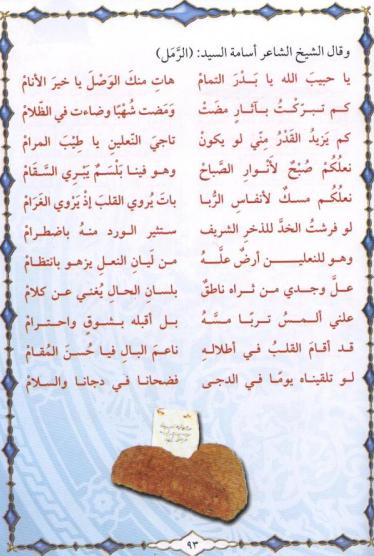 وقال الشيخ الشاعر أسامة السيد: (الرَّمَل)
يا حبيبَ الله يا بَدْرَ التمامْ هاتِ منكَ الوَصْلَ يا خيرَ الأنامْ
كم تبرّكتُ بآثارٍ مضَتْ وَمَضت شُهْبًا وضاءت في الظّلامْ
كم يَزيدُ القَدْرُ مِنّي لو يكونْ تاجيَ النّعلينِ يا طِيْبَ المرامْ
نعلُكُمْ صُبْحٌ لأنْوارِ الصّباحْ وهو فينا بَلْسَمٌ يَبْري السَّقامْ
نعلُكُم مسكٌ لأنفاسِ الرُّبا باتَ يُروي القلبَ إذْ يَرْوي الغَرامْ
لو فرشتُ الخدَّ للذخرِ الشريف ستثير الورد منهُ باضطرامْ
وهو للنعلين أرضٌ علَّهُ من لَيانِ النعلِ يزهو بانتظامْ
علَّ وجدي من ثراه ناطقٌ بلسانِ الحالِ يُغني عن كلامْ
علني ألمسُ تربًا مسَّهُ بل أقبله بشوقٍ واحترامْ
قد أقامَ القلبُ في أطلالهِ ناعمَ البالِ فيا حُسنَ المُقامْ
لو تلقيناه يومًا في الدجى فضحانا في دجانا والسلامْ
٩٣